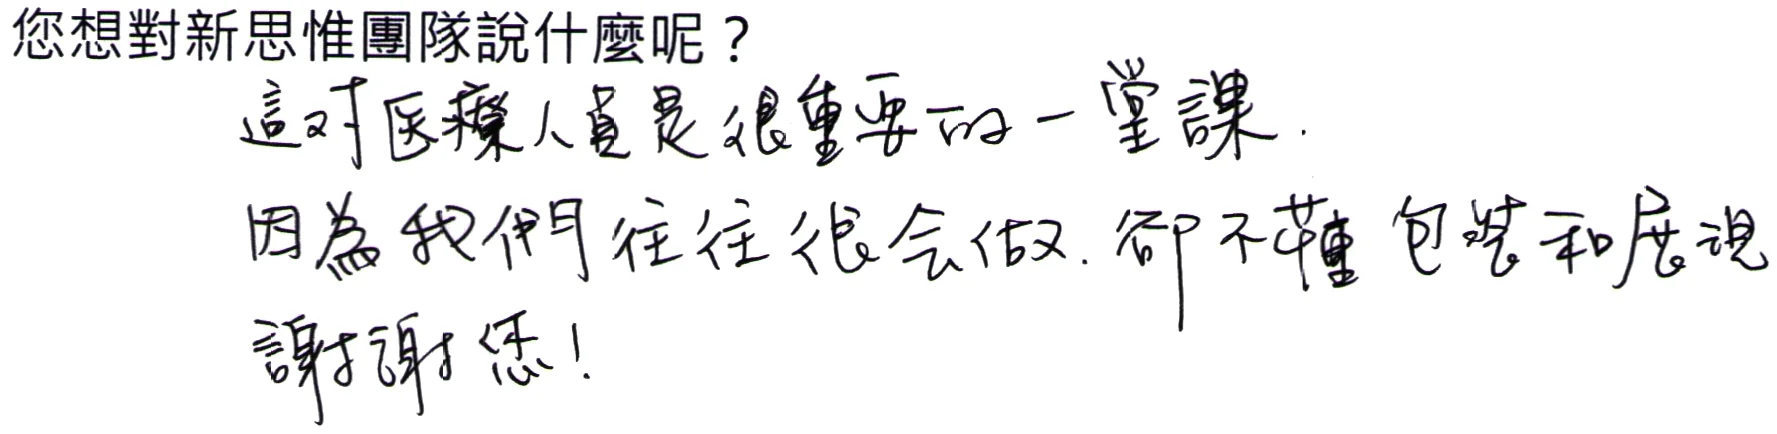 您想對新思惟團隊說什麼呢？
這对医療人員是很重要的一堂課.
因為我們往往很会做.卻不懂包裝和展現
謝謝您!